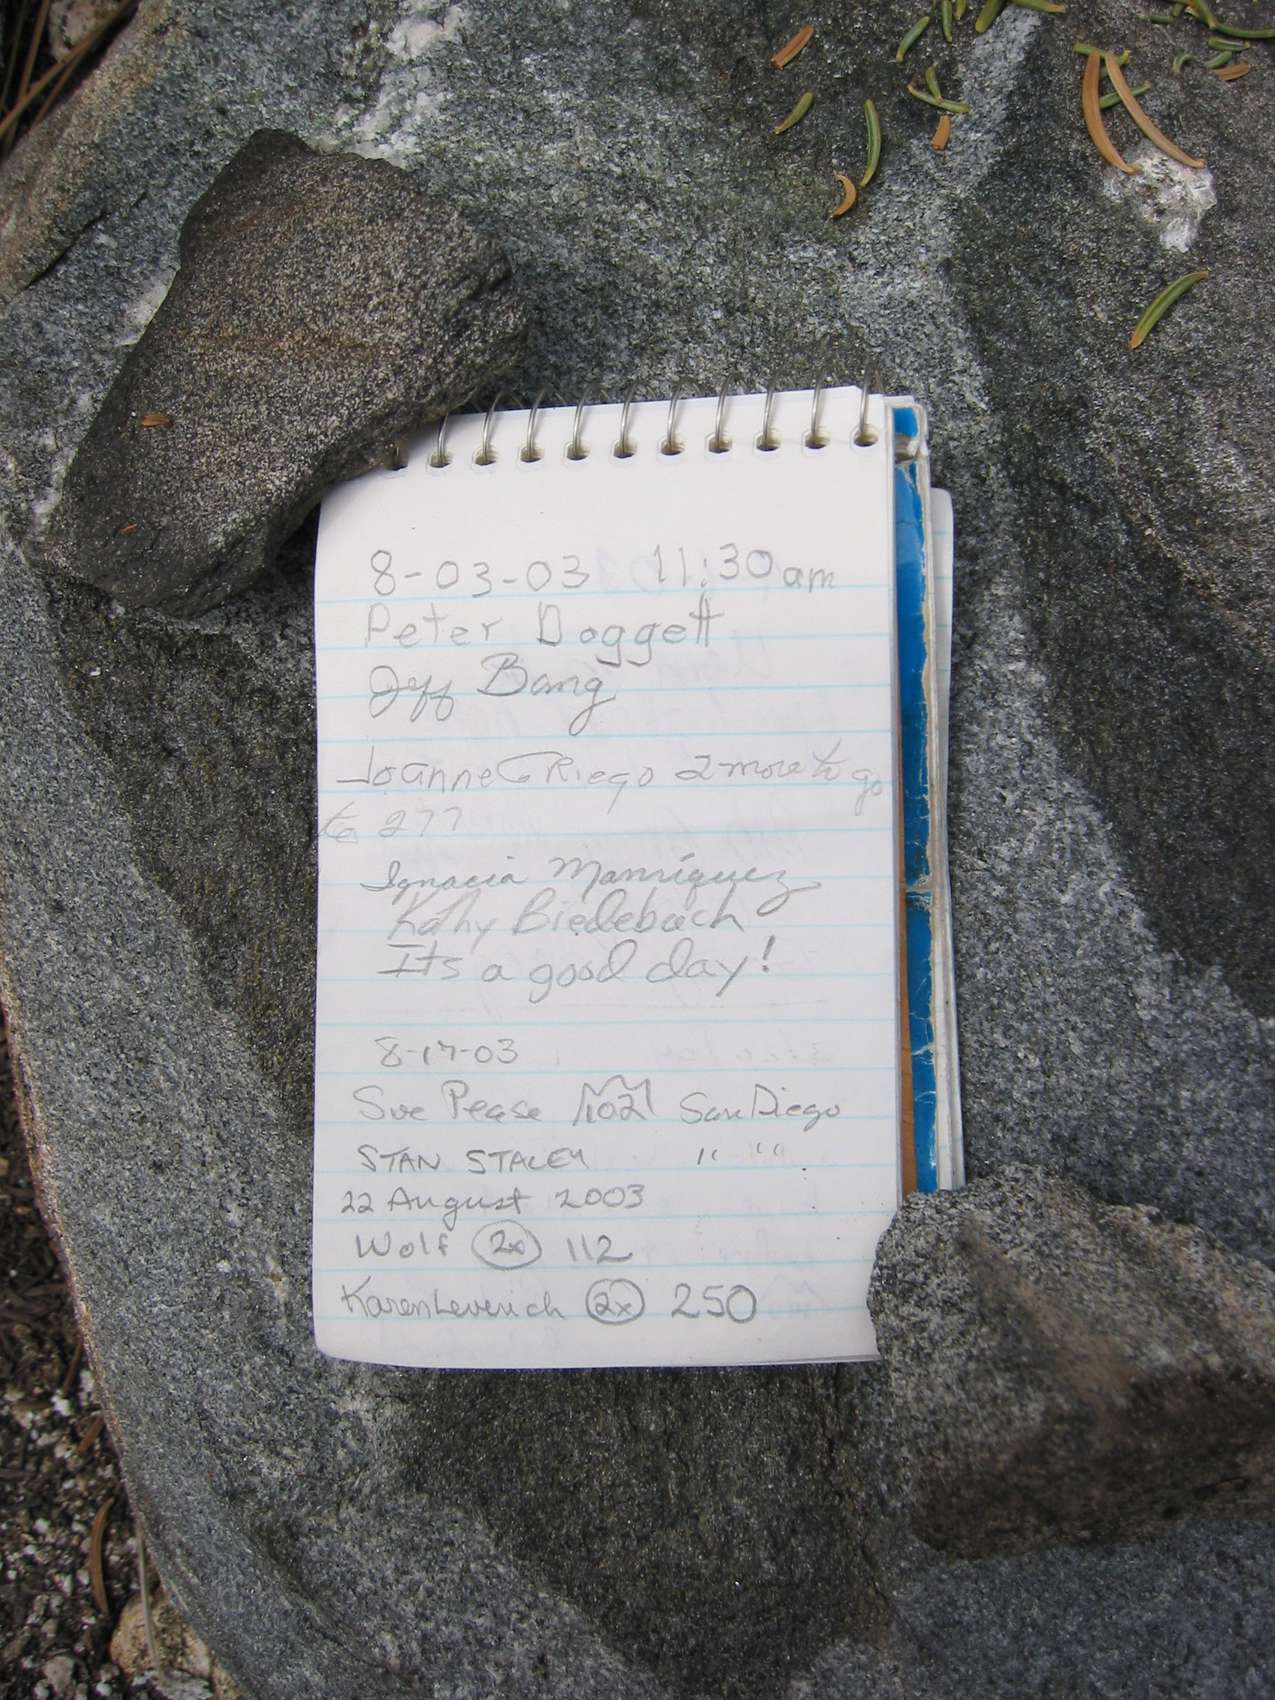 8-03-03 11:30am
Peter Doggett
Jeff Bang
Joanne Griego 2 more to go
to 277
Ignacia Manríquez
Kathy Biedebach
Its a good day!
8-17-03
Sue Pease 102 San Diego
STAN STALEY " "
22 August 2003
Wolf 2x 112
Karen Leverich 2x 250